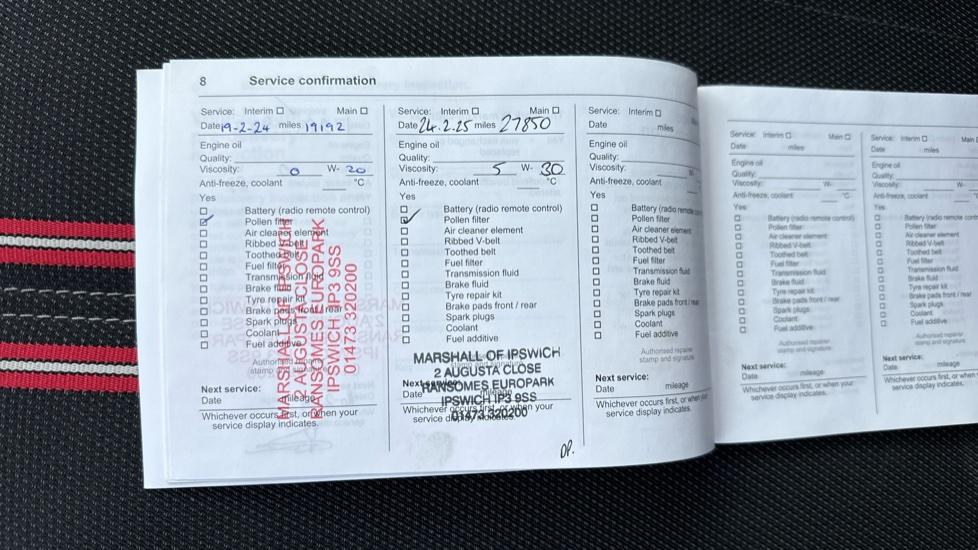 8 Service confirmation
Service: Interim ☐ Main ☐
Date 19-2-24 miles 19192
Engine oil
Quality:
Viscosity: 0 W- 20
Anti-freeze, coolant °C
Yes
☐ Battery (radio remote control)
☑ Pollen filter
☐ Air cleaner element
☐ Ribbed V-belt
☐ Toothed belt
☐ Fuel filter
☐ Transmission fluid
☐ Brake fluid
☐ Tyre repair kit
☐ Brake pads front / rear
☐ Spark plugs
☐ Coolant
☐ Fuel additive
Authorised repairer
stamp and signature
MARSHALL OF IPSWICH
2 AUGUSTA CLOSE
RANSOMES EUROPARK
IPSWICH IP3 9SS
01473 320200
Next service:
Date mileage
Whichever occurs first, or when your
service display indicates.
Service: Interim ☐ Main ☐
Date 24.2.25 miles 27850
Engine oil
Quality:
Viscosity: 5 W- 30
Anti-freeze, coolant °C
Yes
☐ Battery (radio remote control)
☑ Pollen filter
☐ Air cleaner element
☐ Ribbed V-belt
☐ Toothed belt
☐ Fuel filter
☐ Transmission fluid
☐ Brake fluid
☐ Tyre repair kit
☐ Brake pads front / rear
☐ Spark plugs
☐ Coolant
☐ Fuel additive
MARSHALL OF IPSWICH
2 AUGUSTA CLOSE
RANSOMES EUROPARK
IPSWICH IP3 9SS
01473 320200
Next service:
Date
Whichever occurs first, or when your
service display indicates.
DP.
Service: Interim ☐
Date miles
Engine oil
Quality:
Viscosity: W-
Anti-freeze, coolant
Yes
☐ Battery (radio remote
☐ Pollen filter
☐ Air cleaner element
☐ Ribbed V-belt
☐ Toothed belt
☐ Fuel filter
☐ Transmission fluid
☐ Brake fluid
☐ Tyre repair kit
☐ Brake pads front / rear
☐ Spark plugs
☐ Coolant
☐ Fuel additive
Authorised repairer
stamp and signature
Next service:
Date mileage
Whichever occurs first, or when your
service display indicates.
Service: Interim ☐ Main ☐
Date miles
Engine oil
Quality:
Viscosity: W-
Anti-freeze, coolant °C
Yes
☐ Battery (radio remote control)
☐ Pollen filter
☐ Air cleaner element
☐ Ribbed V-belt
☐ Toothed belt
☐ Fuel filter
☐ Transmission fluid
☐ Brake fluid
☐ Tyre repair kit
☐ Brake pads front / rear
☐ Spark plugs
☐ Coolant
☐ Fuel additive
Authorised repairer
stamp and signature
Next service:
Date mileage
Whichever occurs first, or when your
service display indicates.
Service: Interim ☐ Main
Date miles
Engine oil
Quality:
Viscosity: W-
Anti-freeze, coolant
Yes
☐ Battery (radio remote
☐ Pollen filter
☐ Air cleaner element
☐ Ribbed V-belt
☐ Toothed belt
☐ Fuel filter
☐ Transmission fluid
☐ Brake fluid
☐ Tyre repair kit
☐ Brake pads front / rear
☐ Spark plugs
☐ Coolant
☐ Fuel additive
Authorised repairer
stamp and signature
Next service:
Date mileage
Whichever occurs first, or when
service display indicates.